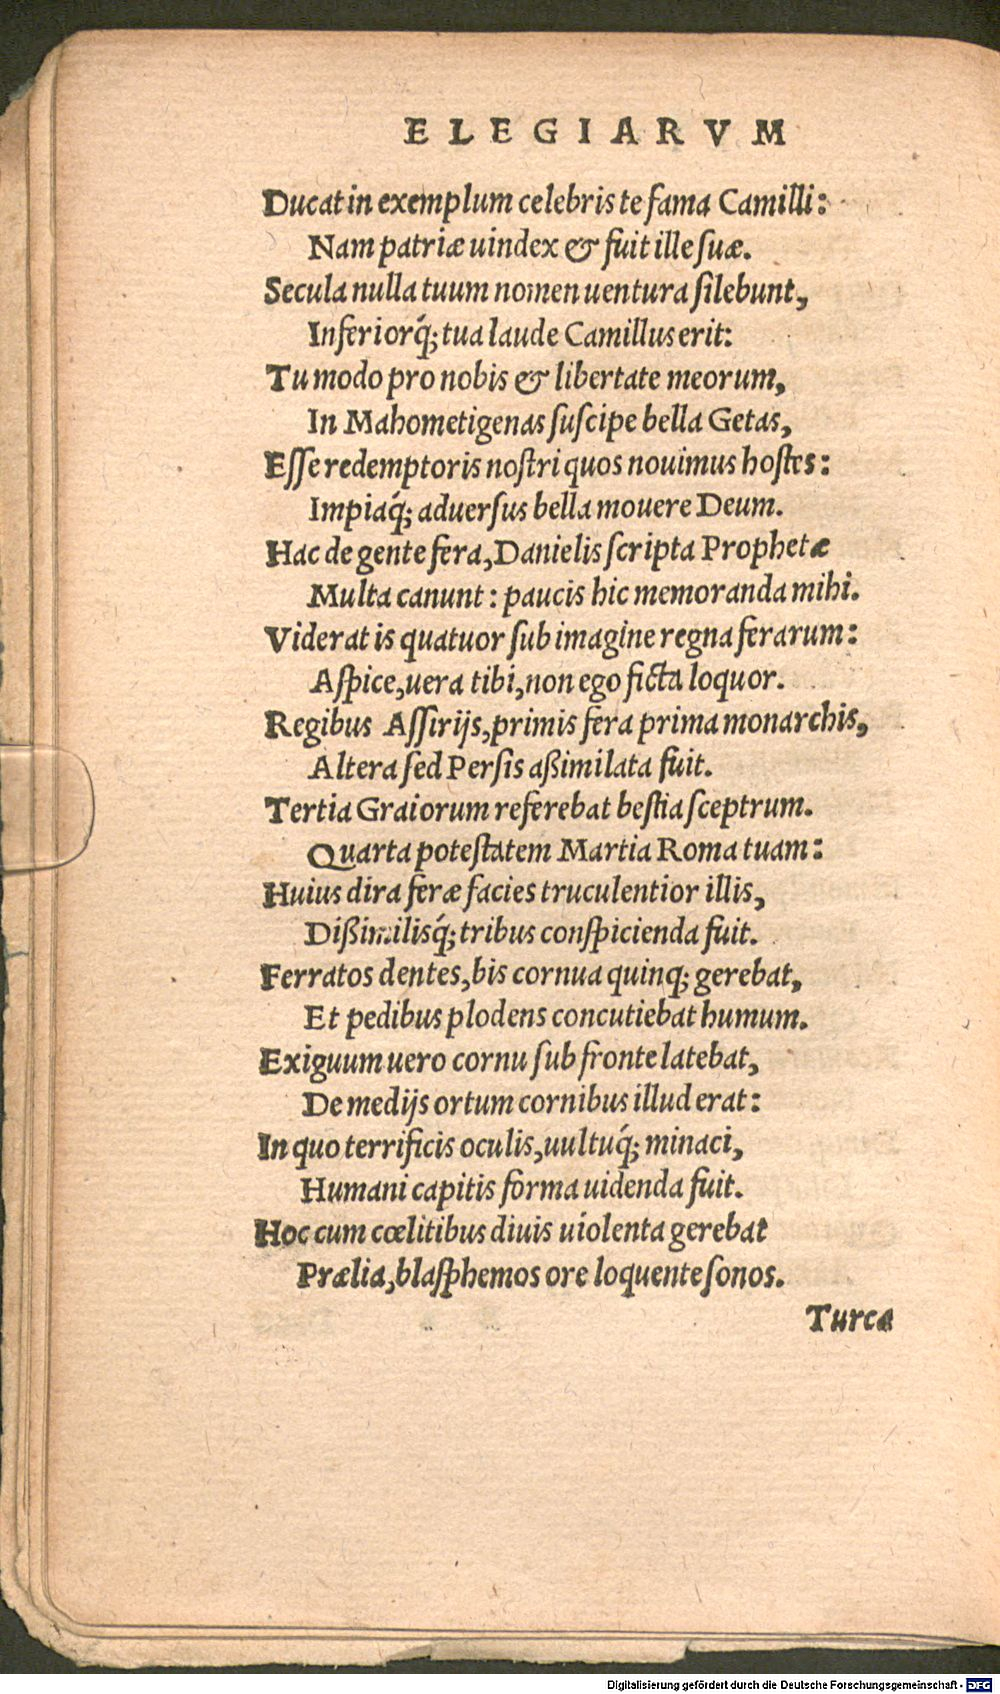 ELEGIARVM
Ducat in exemplum celebris te fama Camilli:
Nam patriæ uindex & fuit ille suæ.
Secula nulla tuum nomen uentura silebunt,
Inferiorq́; tua laude Camillus erit:
Tu modo pro nobis & libertate meorum,
In Mahometigenas suscipe bella Getas,
Esse redemptoris nostri quos nouimus hostes:
Impiaq́; aduersus bella mouere Deum.
Hac de gente fera, Danielis scripta Prophetæ
Multa canunt: paucis hic memoranda mihi.
Viderat is quatuor sub imagine regna ferarum:
Aspice, uera tibi, non ego ficta loquor.
Regibus Assirijs, primis fera prima monarchis,
Altera sed Persis aßimilata fuit.
Tertia Graiorum referebat bestia sceptrum.
Quarta potestatem Martia Roma tuam:
Huius dira feræ facies truculentior illis,
Dißimilisq́; tribus conspicienda fuit.
Ferratos dentes, bis cornua quinq; gerebat,
Et pedibus plodens concutiebat humum.
Exiguum uero cornu sub fronte latebat,
De medijs ortum cornibus illud erat:
In quo terrificis oculis, uultuq́; minaci,
Humani capitis forma uidenda fuit.
Hoc cum cœlitibus diuis uiolenta gerebat
Prælia, blasphemos ore loquente sonos.
Turcæ
Digitalisierung gefördert durch die Deutsche Forschungsgemeinschaft - DFG